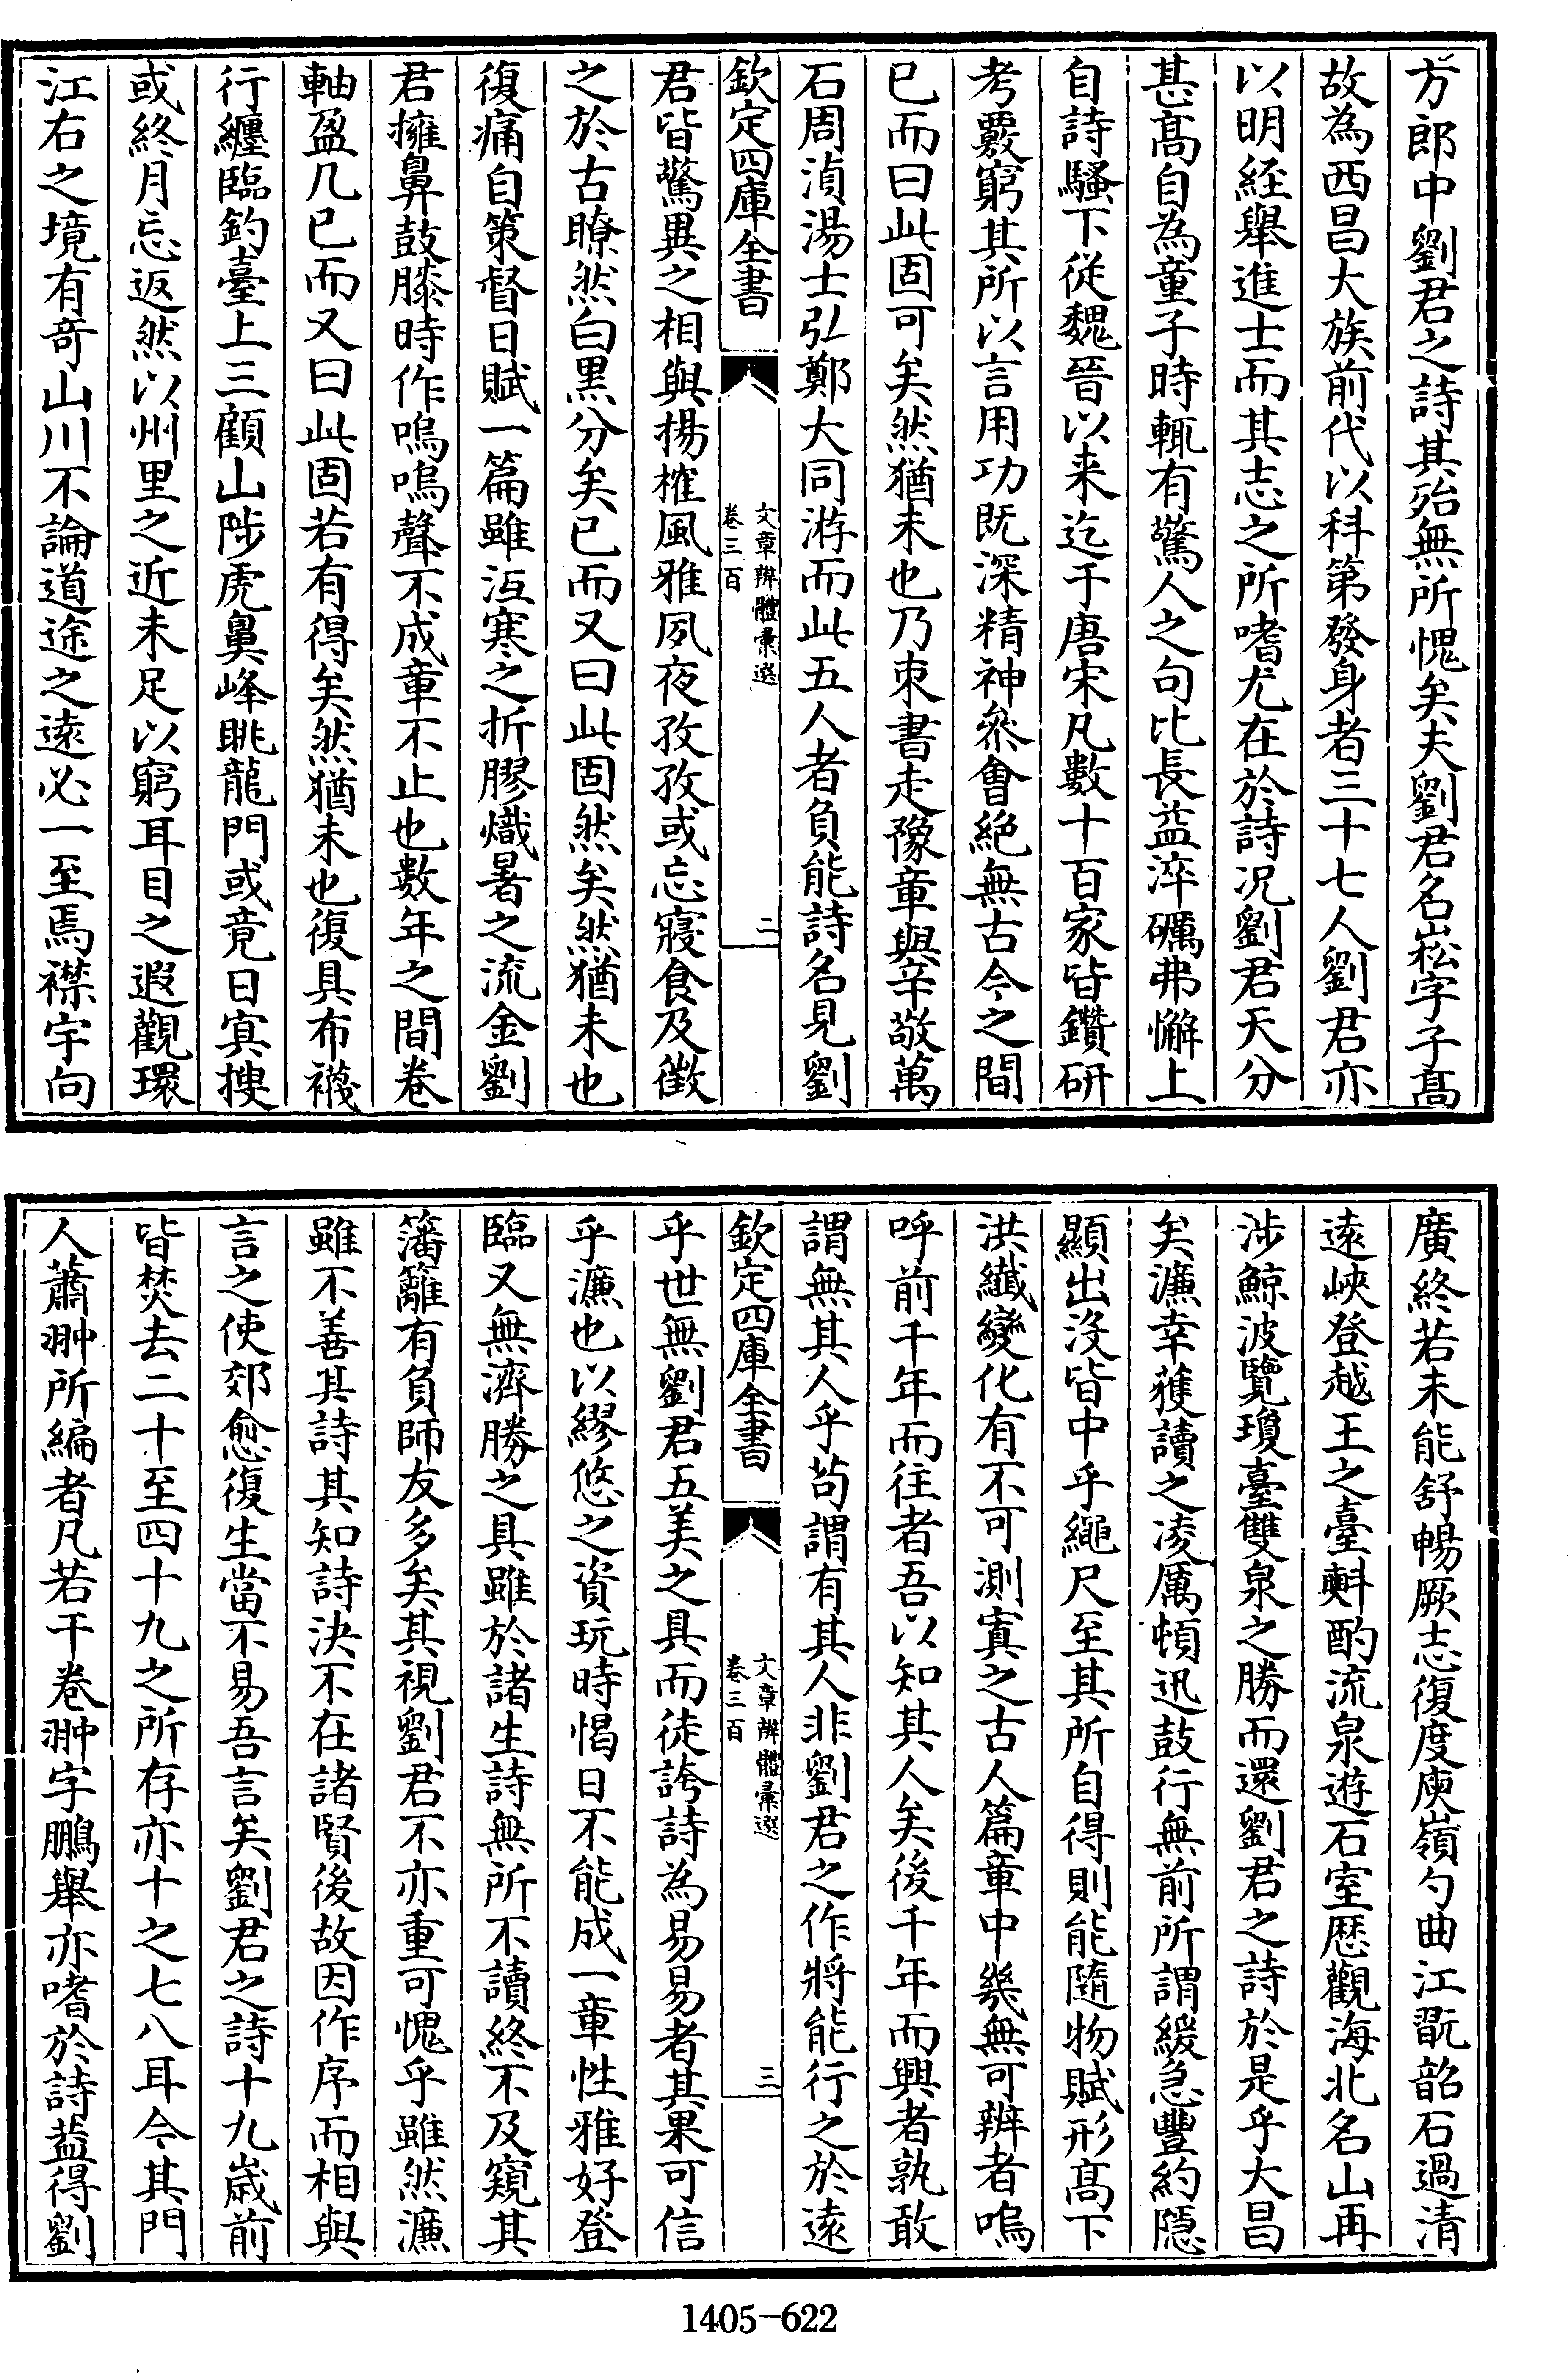 方郎中劉君之詩其殆無所愧矣夫劉君名崧字子髙
故為西昌大族前代以科第發身者三十七人劉君亦
以明經舉進士而其志之所嗜尤在於詩况劉君天分
甚髙自為童子時輒有驚人之句比長益淬礪弗懈上
自詩騷下從魏晉以来迄于唐宋凡數十百家皆鑽研
考覈窮其所以言用功既深精神叅會絶無古今之間
已而曰此固可矣然猶未也乃束書走豫章與辛敬萬
石周湞湯士弘鄭大同游而此五人者負能詩名見劉
欽定四庫全書
文章辨體彚選
卷三百
二
君皆驚異之相與揚榷風雅夙夜孜孜或忘寢食及徵
之於古瞭然白黒分矣已而又曰此固然矣然猶未也
復痛自策督日賦一篇雖沍寒之折膠熾暑之流金劉
君擁鼻鼓膝時作嗚嗚聲不成章不止也數年之間卷
軸盈几已而又曰此固若有得矣然猶未也復具布襪
行纏臨釣臺上三顧山陟虎鼻峰眺龍門或竟日㝠搜
或終月忘返然以州里之近未足以窮耳目之遐觀環
江右之境有竒山川不論道途之逺必一至焉襟宇向
廣終若未能舒暢厥志復度庾嶺勺曲江翫韶石過清
逺峽登越王之臺㪺酌流泉遊石室歴觀海北名山再
涉鯨波覽瓊臺雙泉之勝而還劉君之詩於是乎大昌
矣濂幸獲讀之凌厲頓迅鼓行無前所謂緩急豐約隠
顯出沒皆中乎繩尺至其所自得則能隨物賦形髙下
洪纎變化有不可測寘之古人篇章中幾無可辨者嗚
呼前千年而往者吾以知其人矣後千年而興者孰敢
謂無其人乎茍謂有其人非劉君之作將能行之於逺
欽定四庫全書
文章辨體彚選
卷三百
三
乎世無劉君五美之具而徒誇詩為易易者其果可信
乎濂也以繆悠之資玩時愒日不能成一章性雅好登
臨又無濟勝之具雖於諸生詩無所不讀終不及窺其
籓籬有負師友多矣其視劉君不亦重可愧乎雖然濂
雖不善其詩其知詩決不在諸賢後故因作序而相與
言之使郊愈復生當不易吾言矣劉君之詩十九歳前
皆焚去二十至四十九之所存亦十之七八耳今其門
人蕭翀所編者凡若干卷翀字鵬舉亦嗜於詩葢得劉
1405-622